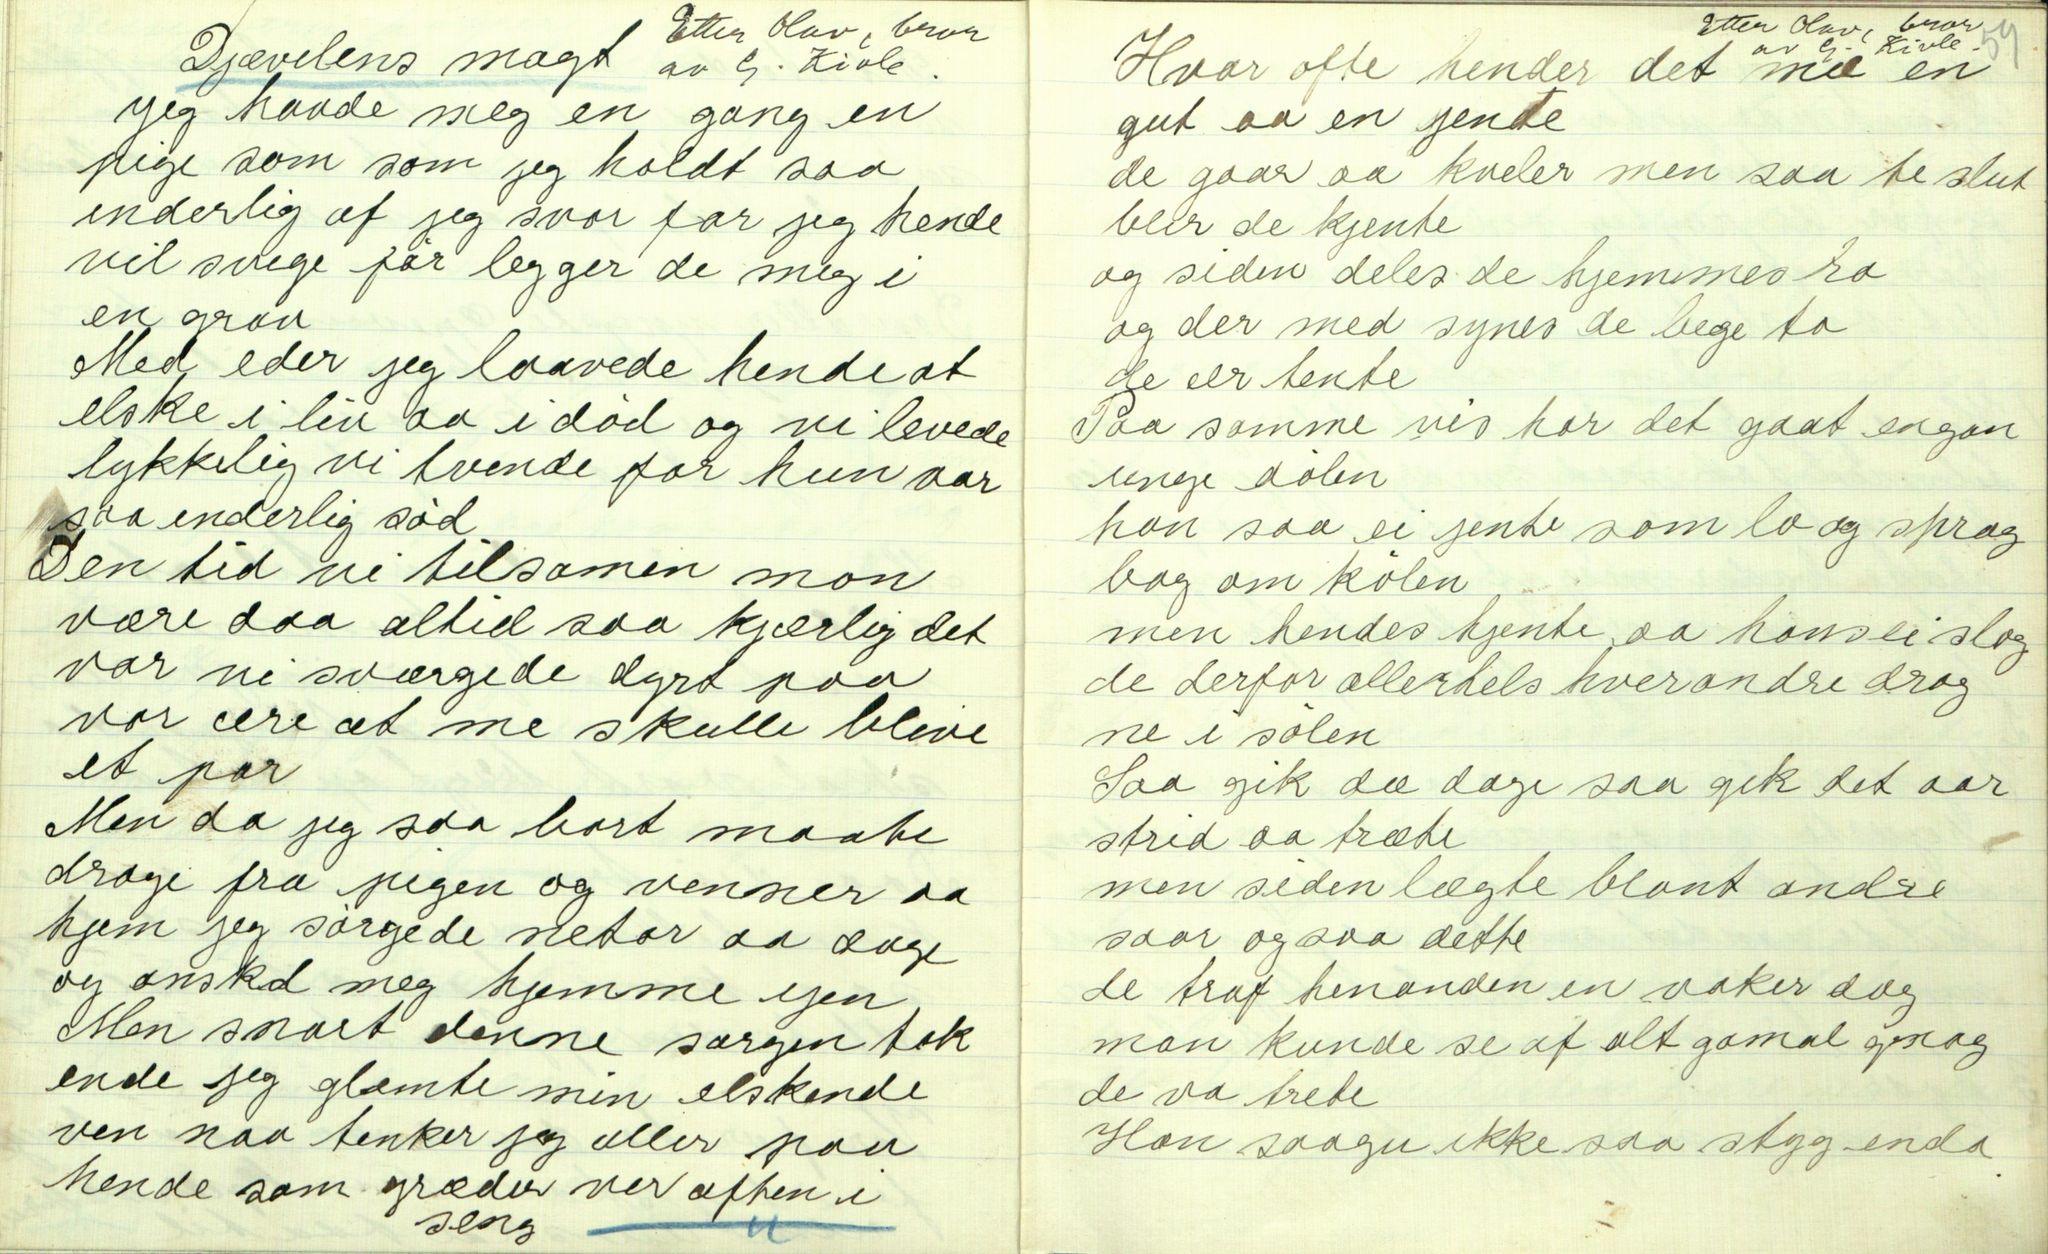 Djævelens magt Etter Olav, bror
av G. Kivle.
jeg havde meg en gang en
pige som som jeg holdt saa
inderlig af jeg svor for jeg hende
vil svige før legger de meg i
en grav
Med eder jeg laavede hende at
elske i liv aa i død og vi levede
lykkelig vi tvende for hun var
saa enderlig sød
Den tid vi tilsamen mon
være daa altid saa kjærlig det
var vi sværgede dyrt paa
vor ære at me skulle blive
et par
Men da jeg saa bort maate
drage fra pigen og venner aa
hjem jeg sørgede netor aa dage
og ønskd meg hjemme igen
Men snart denne sorgen tok
ende jeg glemte min elskende
ven naa tenker jeg aller paa
hende som græder ver aften i
seng
Etter Olav, bror
av G. Kivle. 54
Hvor ofte hender det mæ en
gut aa en jente
de gaar aa kveler men saa te slut
bler de kjente
og siden deles de hjemmes ra
og der med synes de bege to
de ær tente
Paa samme vis har det gaat engan
unge dølen
han saa ei jente som lo og sprag
bag om kølen
men hendes hjente aa hans ei slog
de derfor allerhels hverandre drog
ne i sølen
Saa gik dæ dage saa gik det aar
strid aa træte
men siden lægte blant andre
saar og saa dette
de traf henanden en vaker dag
man kunde se af alt gamal gnag
de va trete
Han saagu ikke saa styg enda